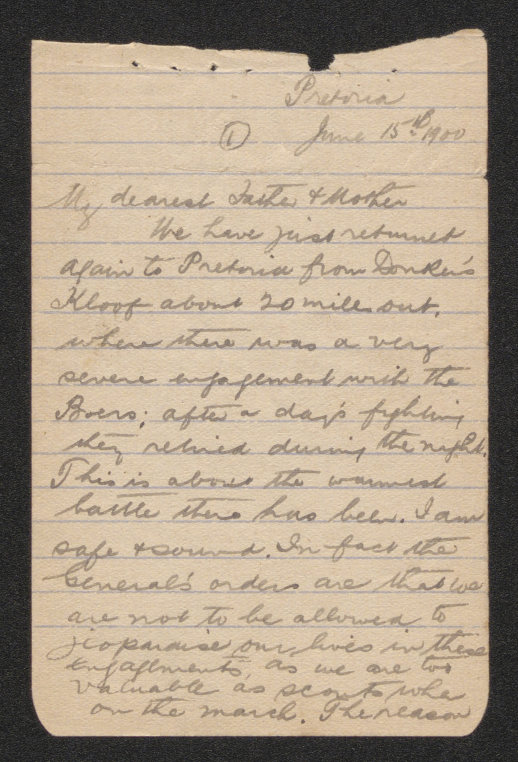 Pretoria
① June 15th 1900
My dearest Father & Mother
We have just returnet
again to Pretoria from Donker's
Kloof about 20 miles out,
where there was a very
severe engagement with the
Boers; after a day's fighting
they retired during the night.
This is about the warmest
battle there has been. I am
safe & sound. In fact the
General's orders are that we
are not to be allowed to
jeopardise our lives in these
engagements, as we are too
valuable as scouts when
on the march. The reason